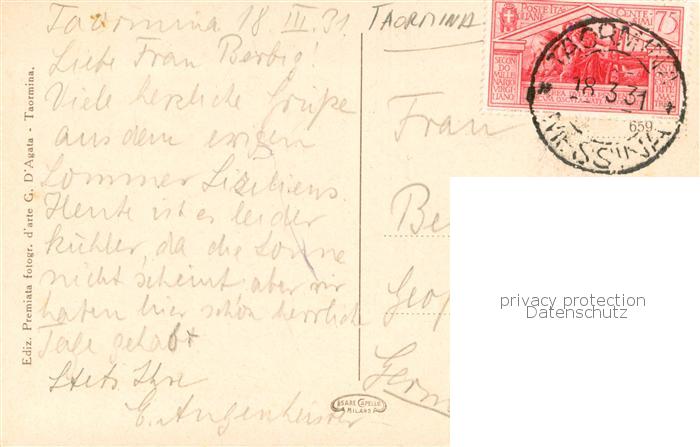 Taormina 18 III. 31
TAORMINA
Liebe Frau Berbig!
Viele herzliche Grüße
aus dem ewigen
Sommer Siziliens.
Heute ist es leider
kühler, da die Sonne
nicht scheint aber wir
haben hier schön herrlich
Tage gehabt
Stets Ihre
E.
Frau
Be
Geo
Germ
Ediz. Premiata fotogr. d'arte G. D'Agata - Taormina.
CESARE CAPELLO
MILANO
POSTE ITALIANE
CENTESIMI 75
SECONDO MILLENARIO VIRGILIANO
TAORMINA
18.3.31
MESSINA
659
privacy protection
Datenschutz